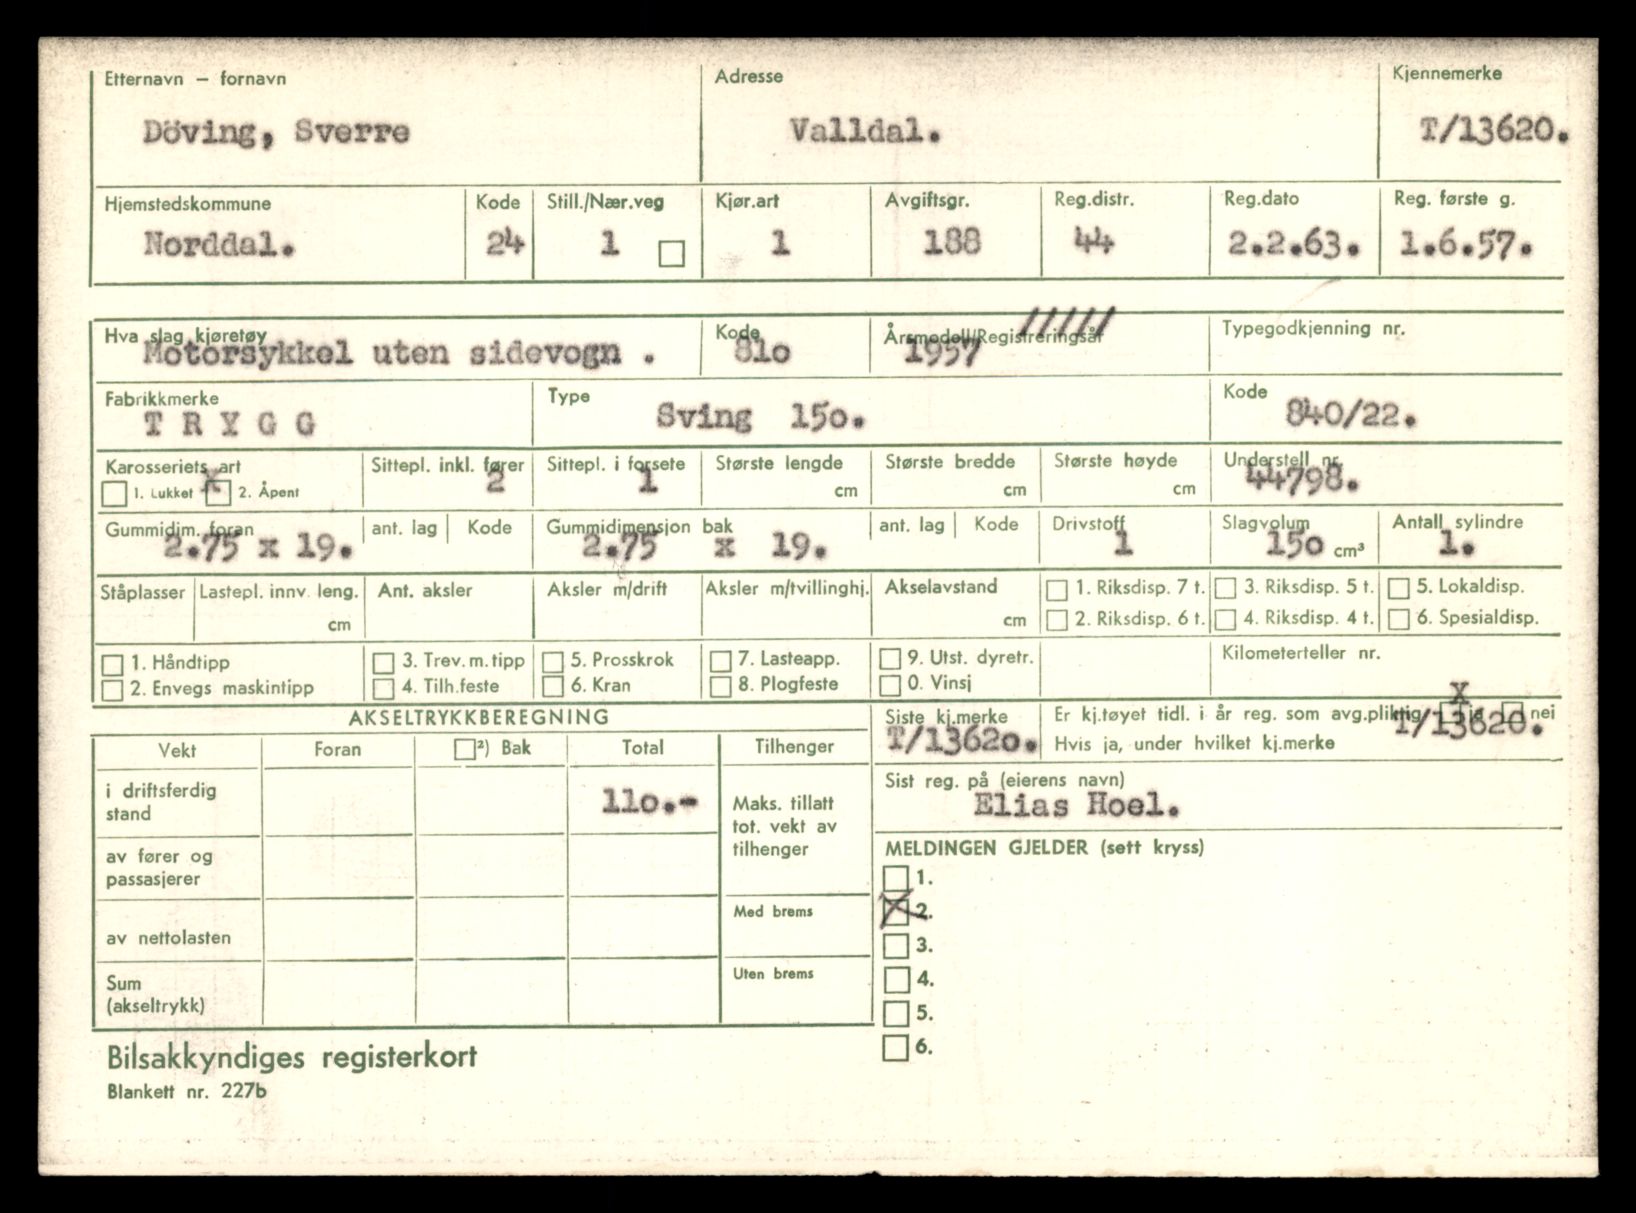 Etternavn – fornavn Adresse Kjennemerke
Döving, Sverre Valldal. T/13620.
Hjemstedskommune Kode Still./Nær.veg Kjør.art Avgiftsgr. Reg.distr. Reg.dato Reg. første g.
Norddal. 24 1 1 188 44 2.2.63. 1.6.57.
Hva slag kjøretøy Kode Årsmodell/Registreringsår Typegodkjenning nr.
Motorsykkel uten sidevogn . 81o 1957
Fabrikkmerke Type Kode
T R Y G G Sving 15o. 840/22.
Karosseriets art Sittepl. inkl. fører Sittepl. i forsete Største lengde Største bredde Største høyde Understell nr.
x 2 1 44798.
1. Lukket 2. Åpent cm cm cm
Gummidim. foran ant. lag Kode Gummidimensjon bak ant. lag Kode Drivstoff Slagvolum Antall sylindre
2.75 x 19. 2.75 x 19. 1 15o cm³ 1.
Ståplasser Lastepl. innv. leng. Ant. aksler Aksler m/drift Aksler m/tvillinghj. Akselavstand 1. Riksdisp. 7 t. 3. Riksdisp. 5 t. 5. Lokaldisp.
cm cm 2. Riksdisp. 6 t. 4. Riksdisp. 4 t. 6. Spesialdisp.
1. Håndtipp 3. Trev. m. tipp 5. Prosskrok 7. Lasteapp. 9. Utst. dyretr. Kilometerteller nr.
2. Envegs maskintipp 4. Tilh.feste 6. Kran 8. Plogfeste 0. Vinsj
AKSELTRYKKBEREGNING
Siste kj.merke Er kj.tøyet tidl. i år reg. som avg.pliktig X ja nei
T/1362o. Hvis ja, under hvilket kj.merke T/13620.
Vekt Foran ²) Bak Total Tilhenger
Sist reg. på (eierens navn)
Elias Hoel.
i driftsferdig
stand 11o.-
Maks. tillatt
tot. vekt av
tilhenger
av fører og
passasjerer
Med brems
av nettolasten
Uten brems
Sum
(akseltrykk)
MELDINGEN GJELDER (sett kryss)
1.
X 2.
3.
4.
5.
6.
Bilsakkyndiges registerkort
Blankett nr. 227b